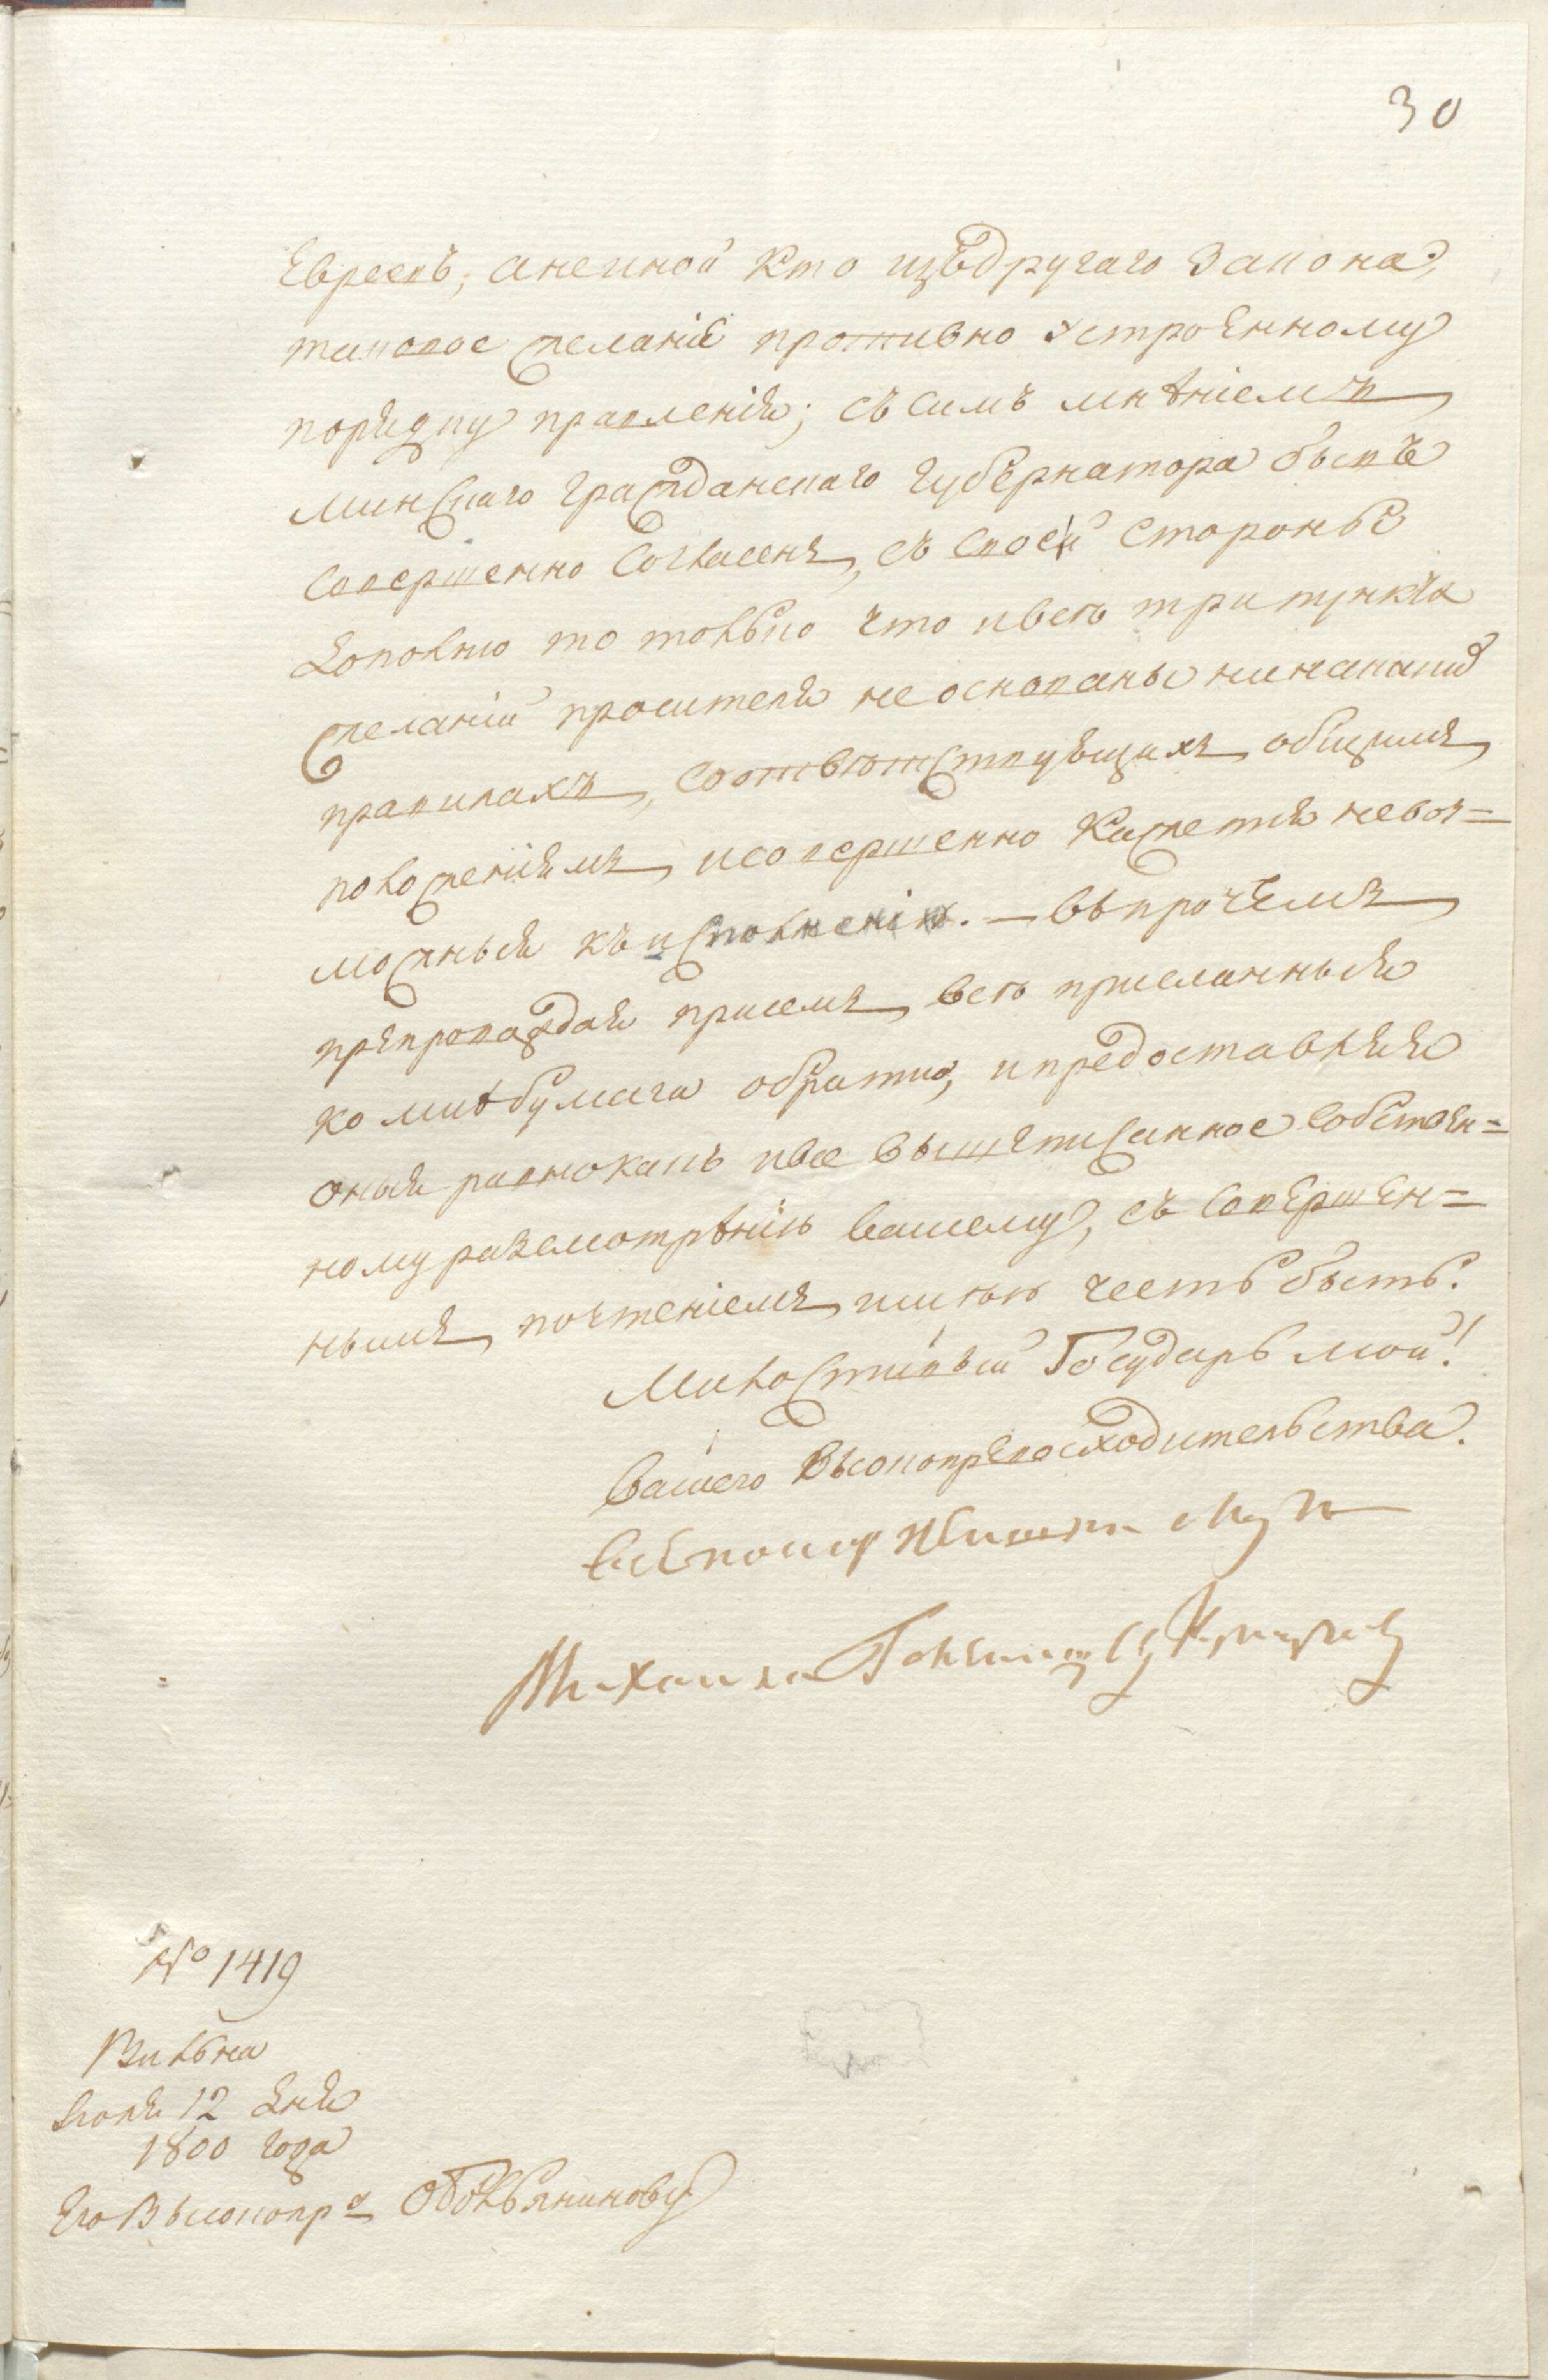 30
Евреевъ, а не иной кто изъ другаго закона,
таковое желаніе противно устроенному
порядку правленія; съ симъ мнѣніемъ
минскаго гражданскаго губернатора бывъ
совершенно согласенъ, съ своей стороны
доповню то только что и всѣ три пункта
желаній просителя не основаны ни на какихъ
правилахъ, соотвѣтствующихъ общимъ
положеніямъ, и совершенно кажется невоз=
можныя къ исполненію. — Впрочемъ
препровождая присемъ, всѣ присланныя
ко мнѣ бумаги обратно, и предоставляя
оныя равно какъ и все вышеписанное собствен=
ному разсмотрѣнію вашему, съ совершен=
нымъ почтеніемъ имѣю честь быть.
Милостивый Государь мой!
вашего Высокопревосходительства.
всепокорнѣйший слуга
Михаила Голенищ Кутузов
№ 1419
Вильна
Іюня 12 дня
1800 года
Его Высокопр&#8203;ву Обольянинову